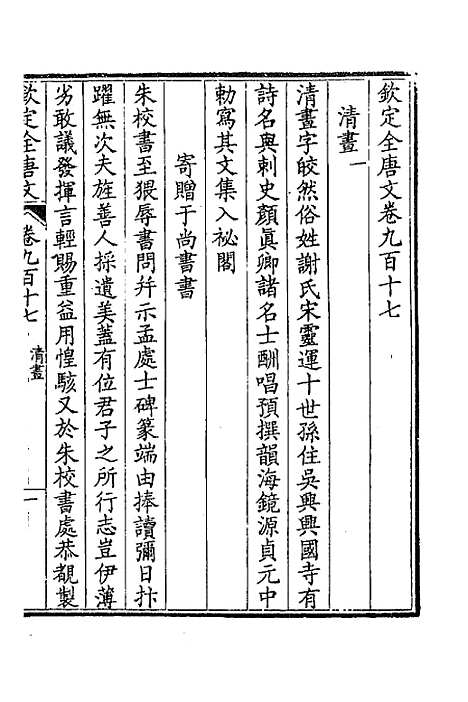 欽定全唐文卷九百十七
清晝一
清晝字皎然俗姓謝氏宋靈運十世孫住吳興興國寺有
詩名與刺史顏眞卿諸名士酬唱預撰韻海鏡源貞元中
勅寫其文集入祕閣
寄贈于尚書書
朱校書至猥辱書問幷示孟處士碑篆端由捧讀彌日抃
躍無次夫旌善人採遺美蓋有位君子之所行志豈伊薄
劣敢議發揮言輕賜重益用惶駭又於朱校書處恭覩製
欽定全唐文 卷九百十七 清晝 一